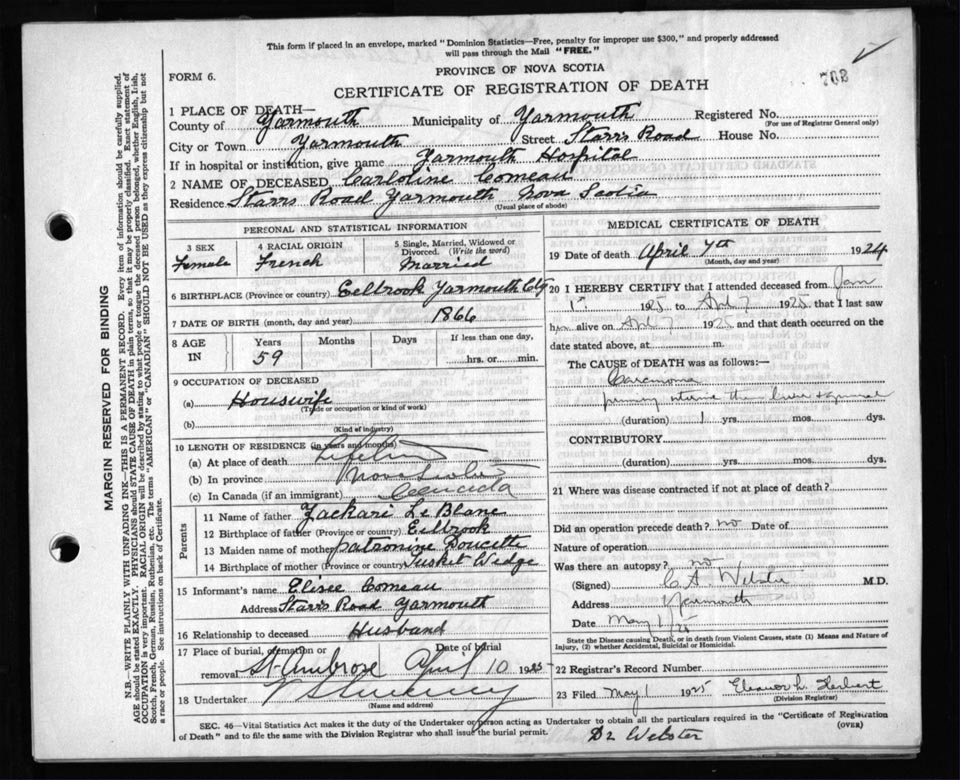 This form if placed in an envelope, marked "Dominion Statistics—Free, penalty for improper use $300," and properly addressed
will pass through the Mail "FREE."
702
PROVINCE OF NOVA SCOTIA
FORM 6.
CERTIFICATE OF REGISTRATION OF DEATH
1 PLACE OF DEATH—
County of Yarmouth Municipality of Yarmouth Registered No.
(For use of Registrar General only)
City or Town Yarmouth Street Starrs Road House No.
If in hospital or institution, give name Yarmouth Hospital
2 NAME OF DECEASED Carloline Comeau
Residence Starrs Road Yarmouth Nova Scotia
(Usual place of abode)
MARGIN RESERVED FOR BINDING
N.B.—WRITE PLAINLY WITH UNFADING INK—THIS IS A PERMANENT RECORD. Every item of information should be carefully supplied.
AGE should be stated EXACTLY. PHYSICIANS should STATE CAUSE OF DEATH in plain terms, so that it may be properly classified. Exact statement of
OCCUPATION is very important. RACIAL ORIGIN will be described by stating to what people or tongue the deceased person belonged, whether English, Irish,
Scotch, French, German, Russian, Ruthenian, etc. The terms "AMERICAN" or "CANADIAN" SHOULD NOT BE USED as they express citizenship but not
a race or people. See instructions on back of Certificate.
PERSONAL AND STATISTICAL INFORMATION
3 SEX
Female
4 RACIAL ORIGIN
French
5 Single, Married, Widowed or
Divorced. (Write the word)
Married
6 BIRTHPLACE (Province or country) Eelbrook Yarmouth Co
7 DATE OF BIRTH (month, day and year) 1866
8 AGE
IN
Years
59
Months
Days
If less than one day,
hrs. or min.
9 OCCUPATION OF DECEASED
(a) Houswife
(Trade or occupation or kind of work)
(b)
(Kind of industry)
10 LENGTH OF RESIDENCE (in years and months)
(a) At place of death
(b) In province Nova Scotia
(c) In Canada (if an immigrant) Canada
Parents
11 Name of father Zackari Le Blanc
12 Birthplace of father (Province or country) Eelbrook
13 Maiden name of mother Patronine Doucette
14 Birthplace of mother (Province or country) Tusket Wedge
15 Informant's name Elisee Comeau
Address Starrs Road Yarmouth
16 Relationship to deceased Husband
17 Place of burial, cremation or
Date of burial
removal St Ambrose April 10 1925
18 Undertaker
(Name and address)
MEDICAL CERTIFICATE OF DEATH
19 Date of death April 7th 1924
(Month, day and year)
20 I HEREBY CERTIFY that I attended deceased from Jan
1st 1925 to Apl 7 1925 that I last saw
her alive on Apl 7 1925 and that death occurred on the
date stated above, at m.
The CAUSE of DEATH was as follows:—
Carcinoma
primary uterine then liver &
(duration) 1 yrs. mos. dys.
CONTRIBUTORY
(duration) yrs. mos. dys.
21 Where was disease contracted if not at place of death?
Did an operation precede death? no Date of
Nature of operation
Was there an autopsy? no
(Signed) C A. Webster M.D.
Address Yarmouth
Date May 1/25
State the Disease causing Death, or in death from Violent Causes, state (1) Means and Nature of
Injury, (2) whether Accidental, Suicidal or Homicidal.
22 Registrar's Record Number
23 Filed May 1 1925 Eleanor L. Herbert
(Division Registrar)
SEC. 46—Vital Statistics Act makes it the duty of the Undertaker or person acting as Undertaker to obtain all the particulars required in the "Certificate of Registration
of Death" and to file the same with the Division Registrar who shall issue the burial permit.
(OVER)
Dr Webster